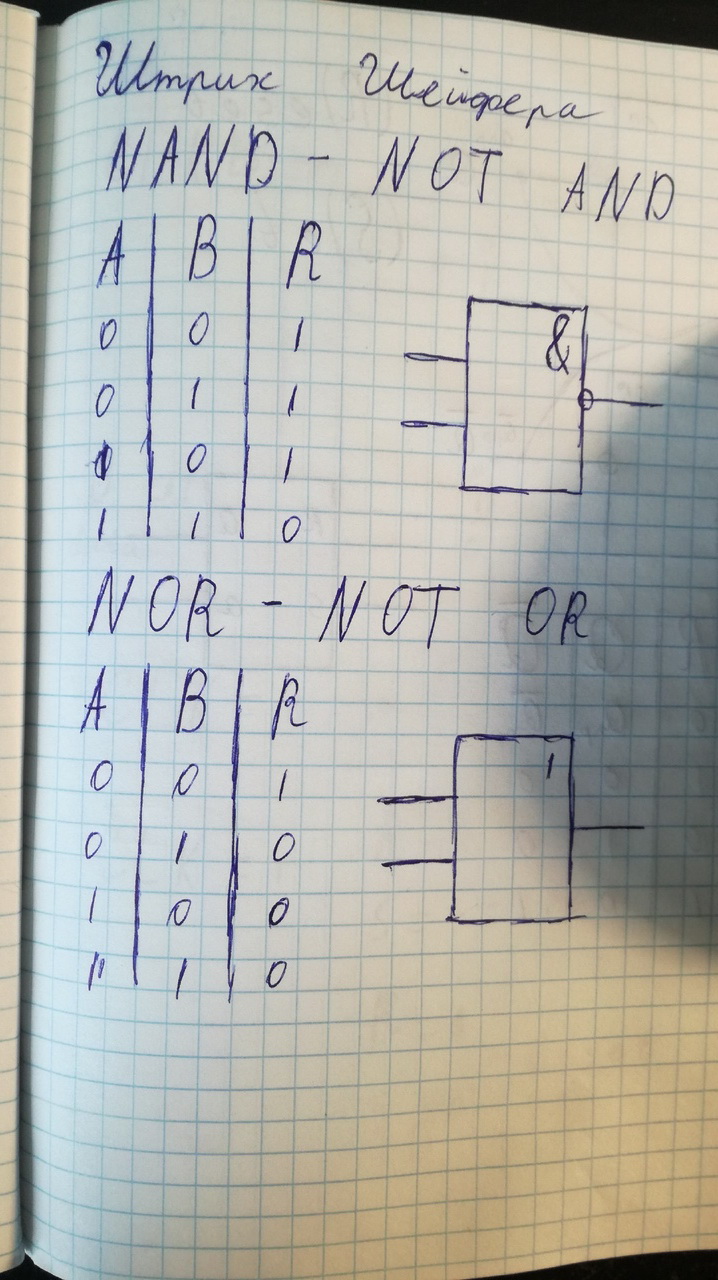 Штрих Шеффера
NAND - NOT AND
A B R
0 0 1
0 1 1
1 0 1
1 1 0
&
NOR - NOT OR
A B R
0 0 1
0 1 0
1 0 0
1 1 0
1